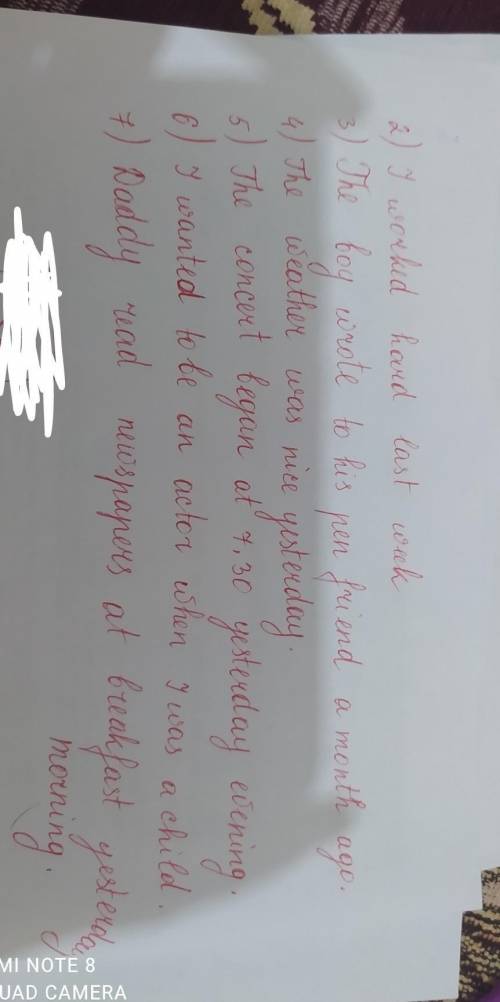 2) I worked hard last week
3) The boy wrote to his pen friend a month ago.
4) The weather was nice yesterday.
5) The concert began at 7.30 yesterday evening.
6) I wanted to be an actor when I was a child.
7) Daddy read newspapers at breakfast yesterday
morning.
MI NOTE 8
UAD CAMERA